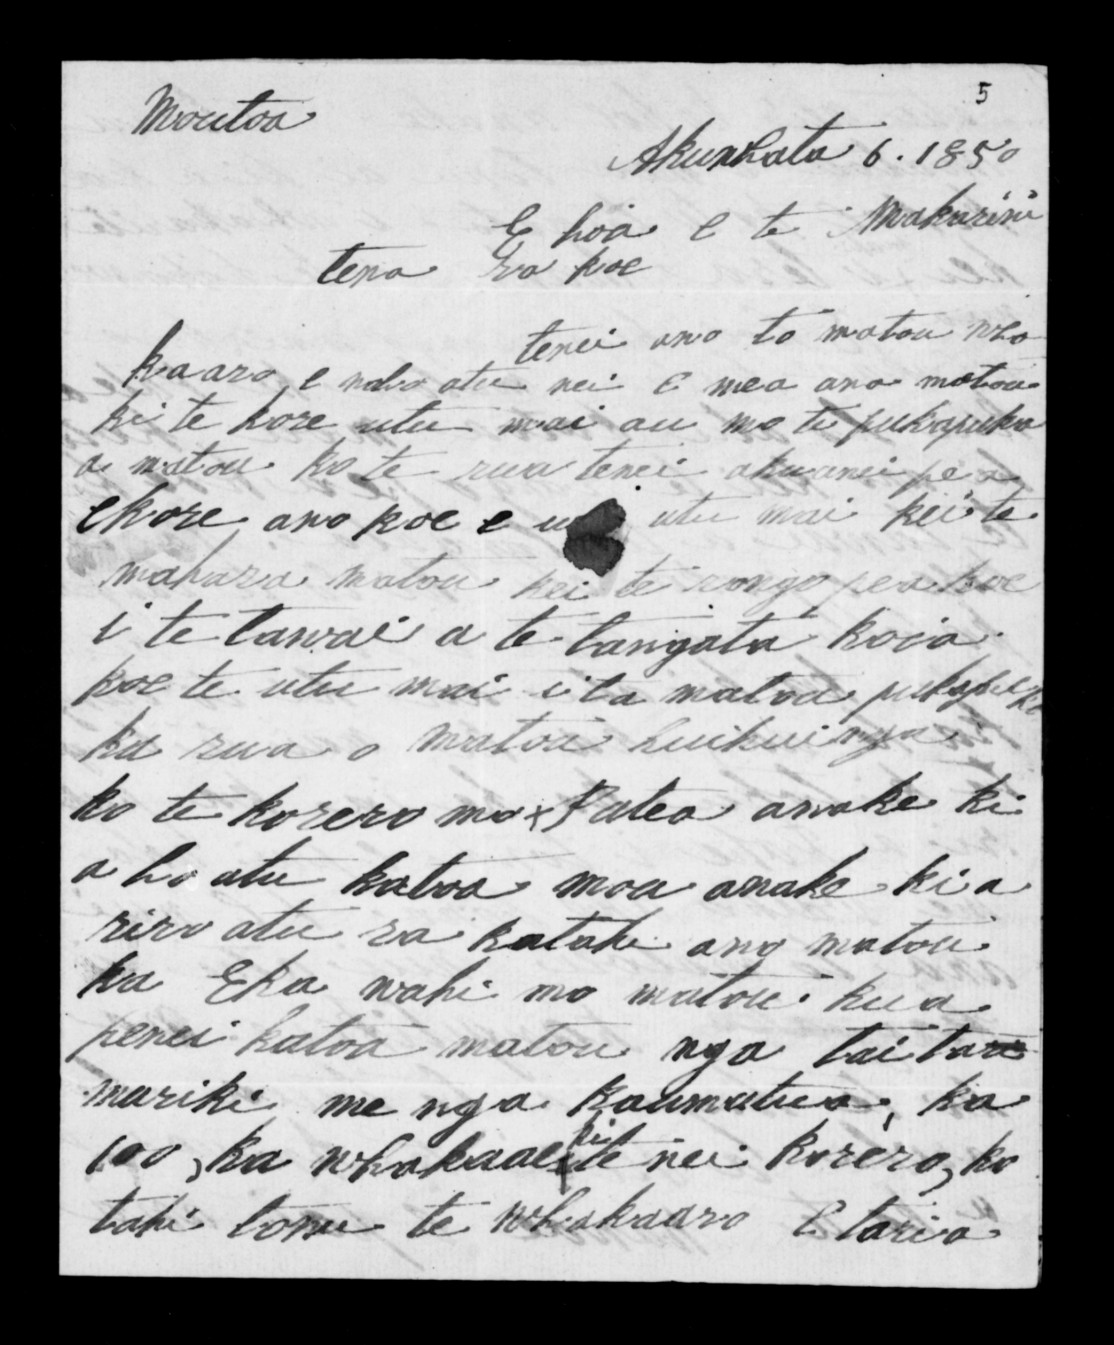 5
Moutoa
Akuhata 6. 1850
E hoa e te Makarini
tena ra koe
tenei ano to matou wha
kaaro, e ndro atu nei E mea ana matou
ki te kore utu mai au mo te pukapuka
a matou ko te rua tenei akuanei pea
ekore ano koe e utu mai kei te
mahara matou kei te rongo pea koe
i te tawai a te tangata koia
koe te utu mai i ta matou pukapuka
ka rua o matou huihuinga
ko te korero mo x Patea anake ki
a hoatu katoa mou anake kia
riro atu ra katahi ano matou
ka Eka wahi mo matou kua
penei katoa matou nga taitam
mariki me nga kaumatua, ka
100, ka whakaae ki te nei korero, ko
tahi tonu te whakaaro E taria